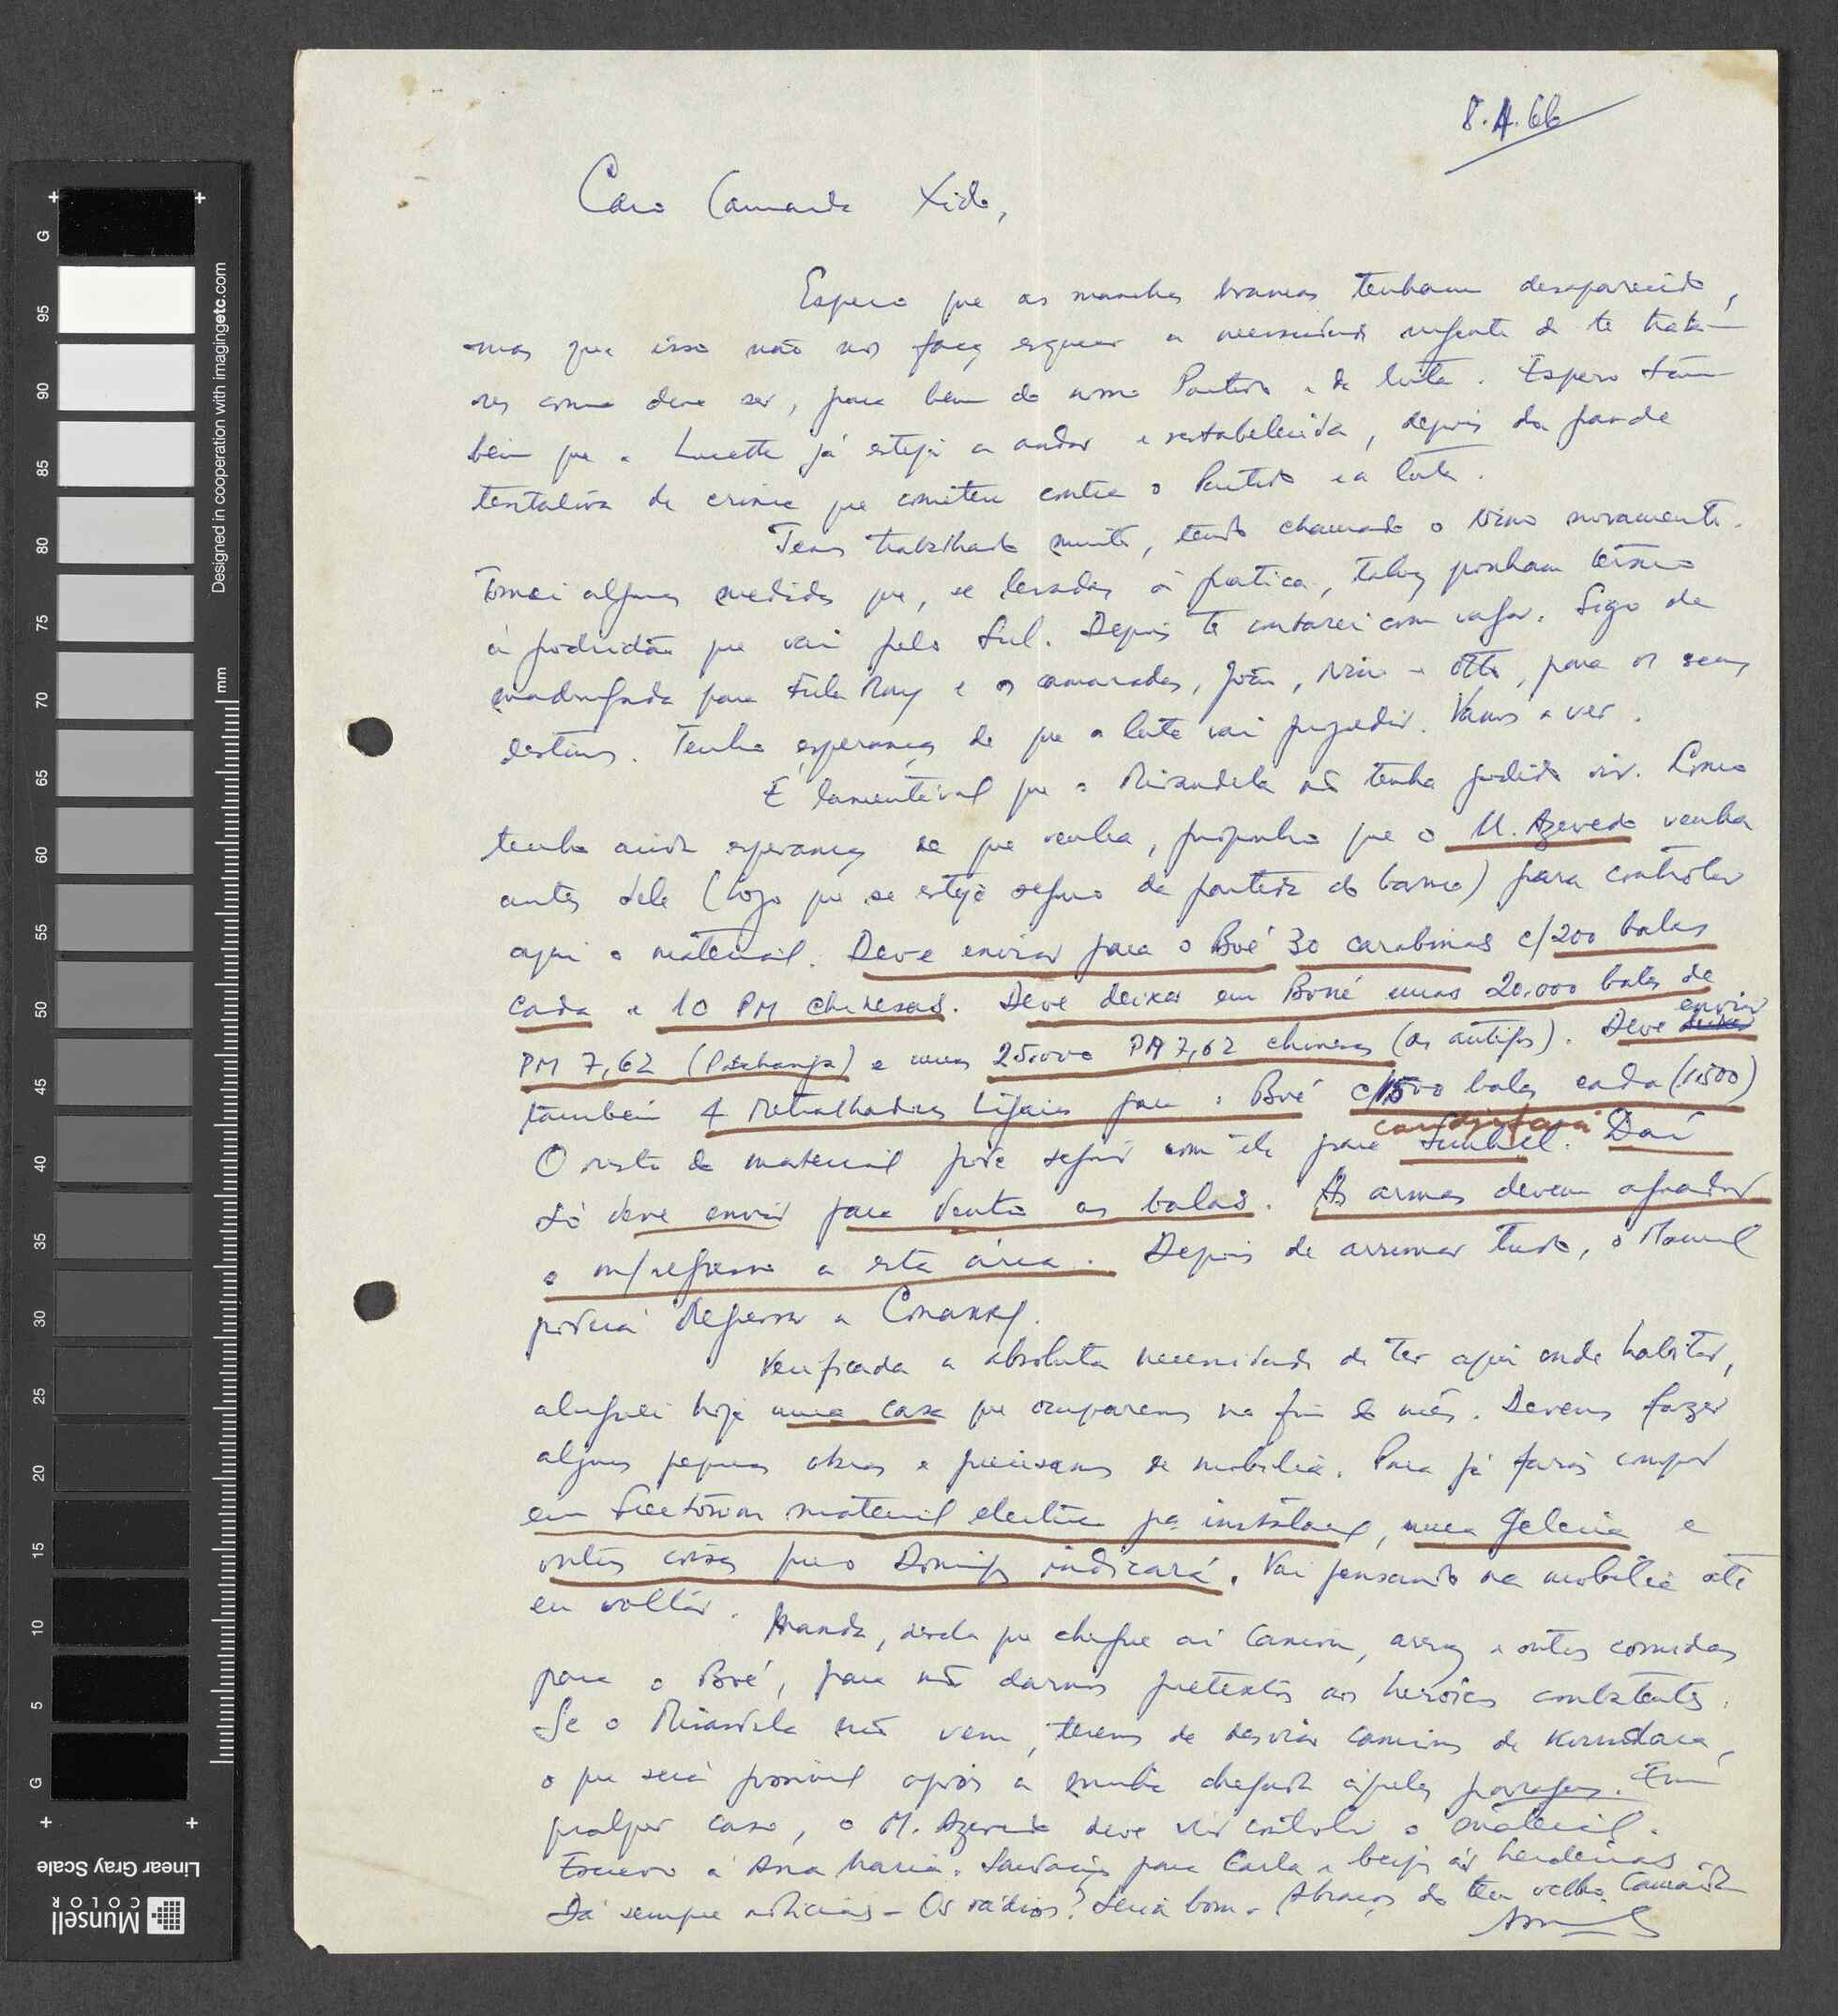 8.4.66
Caro Camarada Xido,
Espero que as manchas brancas tenham desaparecido,
mas que isso não nos faça esquecer a necessidade urgente de te trata-
res como deve ser, para bem do nosso Partido e da luta. Espero tam-
bém que a Lucette já esteja a andar e restabelecida, depois da grande
tentativa de crime que cometeu contra o Partido e a luta.
Temos trabalhado muito, tendo chamado o Nino novamente.
Tomei algumas medidas que, se levadas à prática, talvez ponham termo
à podridão que vai pelo Sul. Depois te contarei com vagar. Sigo de
madrugada para Fula Mory e os camaradas, João, Nino e Otto, para os seus
destinos. Tenho esperança de que a luta vai progredir. Vamos a ver.
É lamentável que o Mirandela não tenha podido vir. Como
tenho ainda esperança de que venha, proponho que o M. Azevedo venha
antes dele (logo que se esteja seguro da partida do barco) para controlar
aqui o material. Deve enviar para o Boé 30 carabinas c/200 balas
cada e 10 PM chinesas. Deve deixar em Boké umas 20.000 balas de
PM 7,62 (Patchanga) e umas 25.000 PM 7,62 chinesas (as antigas). Deve enviar
também 4 Metralhadoras Ligeiras para o Boé c/1500 balas cada (1.500)
O resto do material pode seguir com ele para . Daí
só deve enviar para dentro as balas. As armas devem aguardar
o m/ regresso a esta área. Depois de arrumar tudo, o Manuel
poderá regressar a Conakry.
Verificada a absoluta necessidade de ter aqui onde habitar,
aluguei hoje uma casa que ocuparemos no fim do mês. Devemos fazer
algumas pequenas obras e precisamos de mobília. Para já farás comprar
em material eléctrico pª instalação, uma Geleira e
outras coisas que o Domingos indicará. Vai pensando na mobília até
eu voltar.
Manda, desde que chegue aí camion, arroz e outras comidas
para o Boé, para não darmos pretextos aos heróicos combatentes.
Se o Mirandela não vem, teremos de desviar camions de Koundara,
o que será possível após a minha chegada àquelas paragens. Em
qualquer caso, o M. Azevedo deve vir controlar o material.
Escrevo à Ana Maria. Saudações para Carla e beijos às herdeiras.
Dá sempre notícias - Os rádios? Seria bom. Abraços do teu velho Camarada